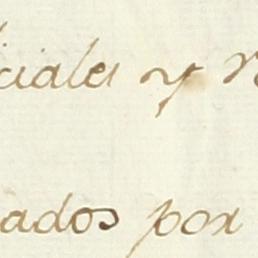 ciales y
ados por